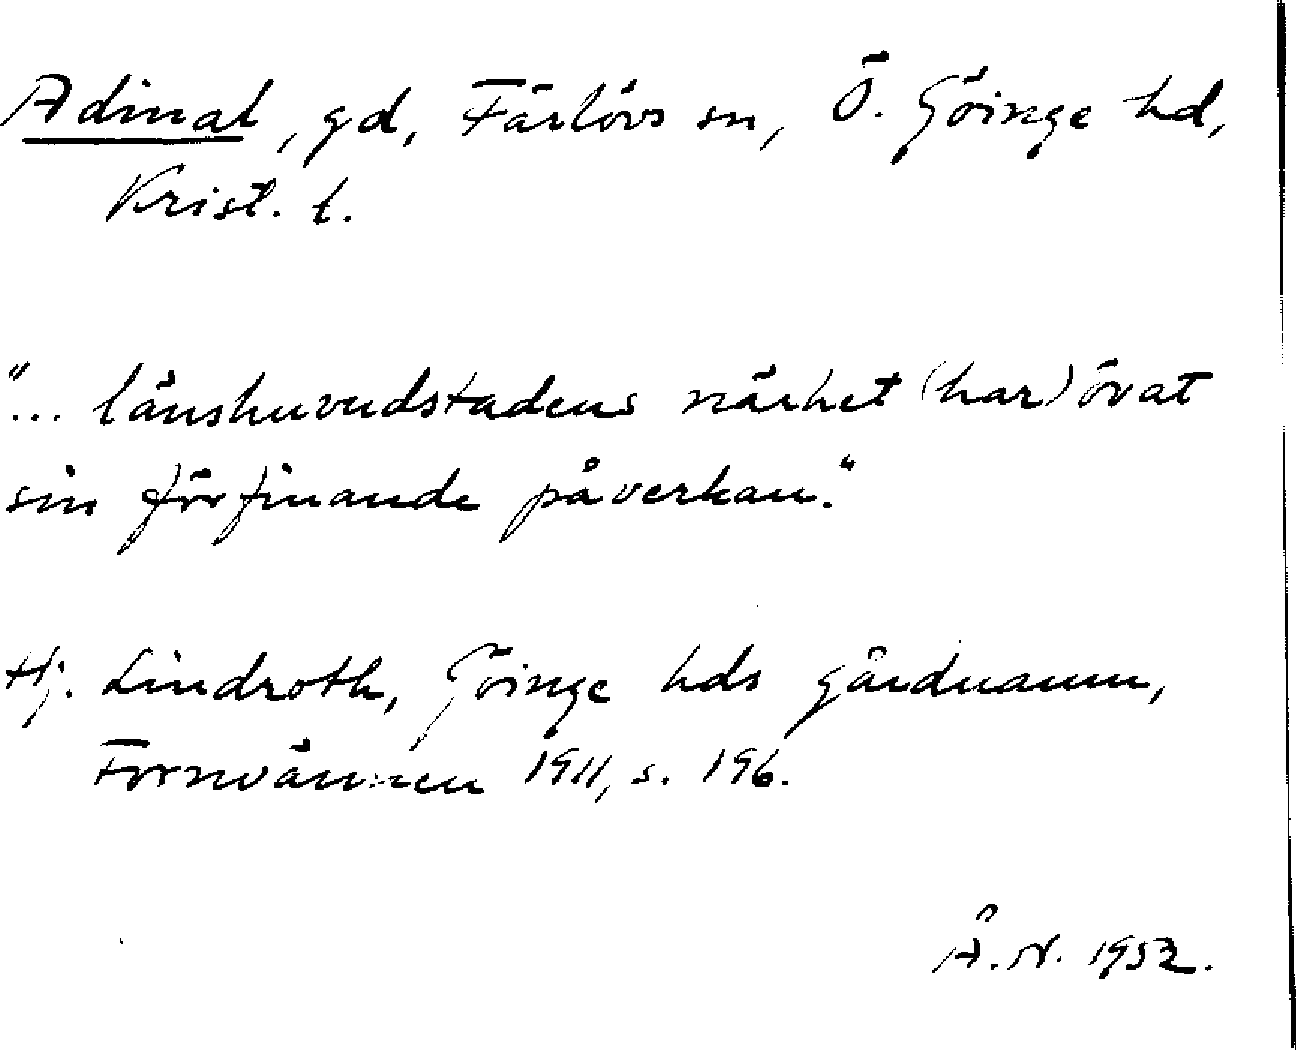 Adinal, gd, Färlövs sn, Ö. Göinge hd,
Krist. l.
"... länshuvudstadens närhet (har) övat
sin förfinande påverkan."
Hj. Lindroth, Göinge hds gårdnamn,
Fornvännen 1911, s. 196.
Å. N. 1952.